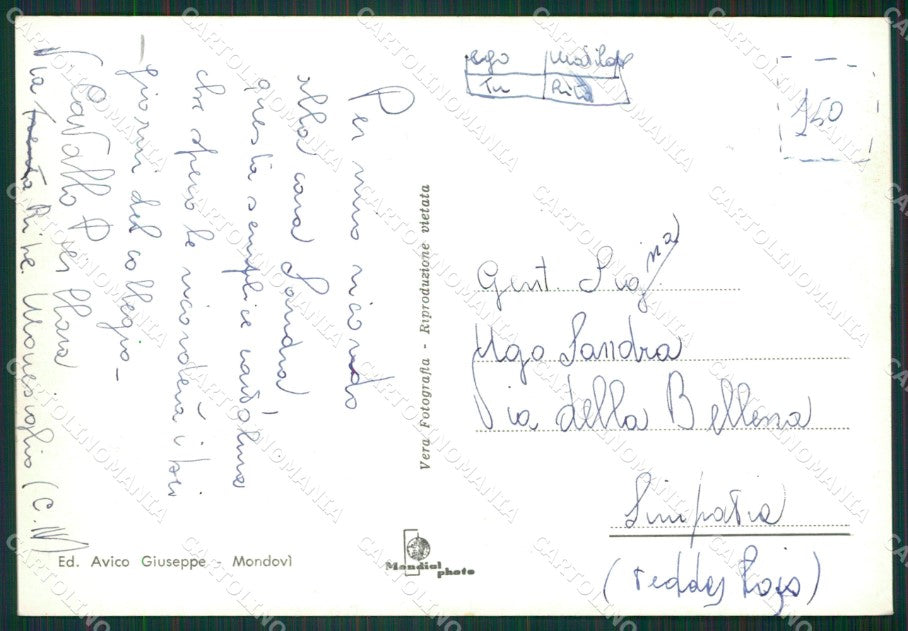 Per mio ricordo
alla cara Sandra
questa semplice cartolina
che spero le ricorderà i bei
giorni del collegio -
Cavallo P
Via Rive Monesiglio (C.N)
Vera Fotografia - Riproduzione vietata
ego Matilde
Tu Rita
150
Gent Sig.na
Ugo Sandra
Via della Bellezza
Simpatia
(Teddy Rojo)
Ed. Avico Giuseppe - Mondovì
Mondial photo
CARTOLINOMANIA